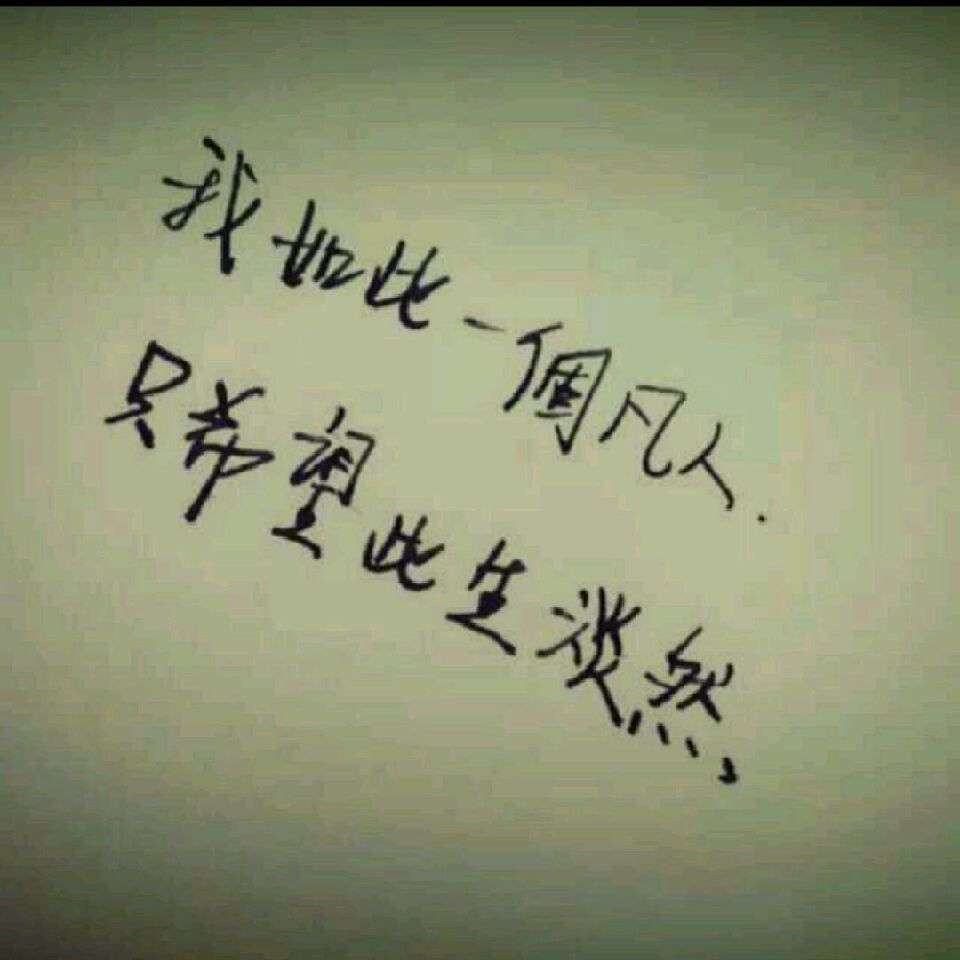 我如此一個凡人.
只希望此生淡然,